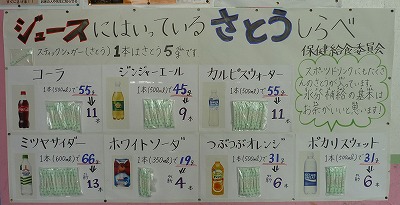 ジュースにはいっているさとうしらべ
スティックシュガー(さとう)1本はさとう5gです。
保健給食委員会
コーラ
1本(500ml)で55g
11本
ジンジャーエール
1本(500ml)で45g
9本
カルピスウォーター
1本(500ml)で55g
11本
スポーツドリンクにもたくさんのさとうが入っています。
水分補給の基本はお茶がいいと思います!
ミツヤサイダー
1本(600ml)で66g
約13本
ホワイトソーダ
1本(350ml)で19g
約4本
つぶつぶオレンジ
1本で31g
約6本
ポカリスウェット
1本(500ml)で31g
約6本